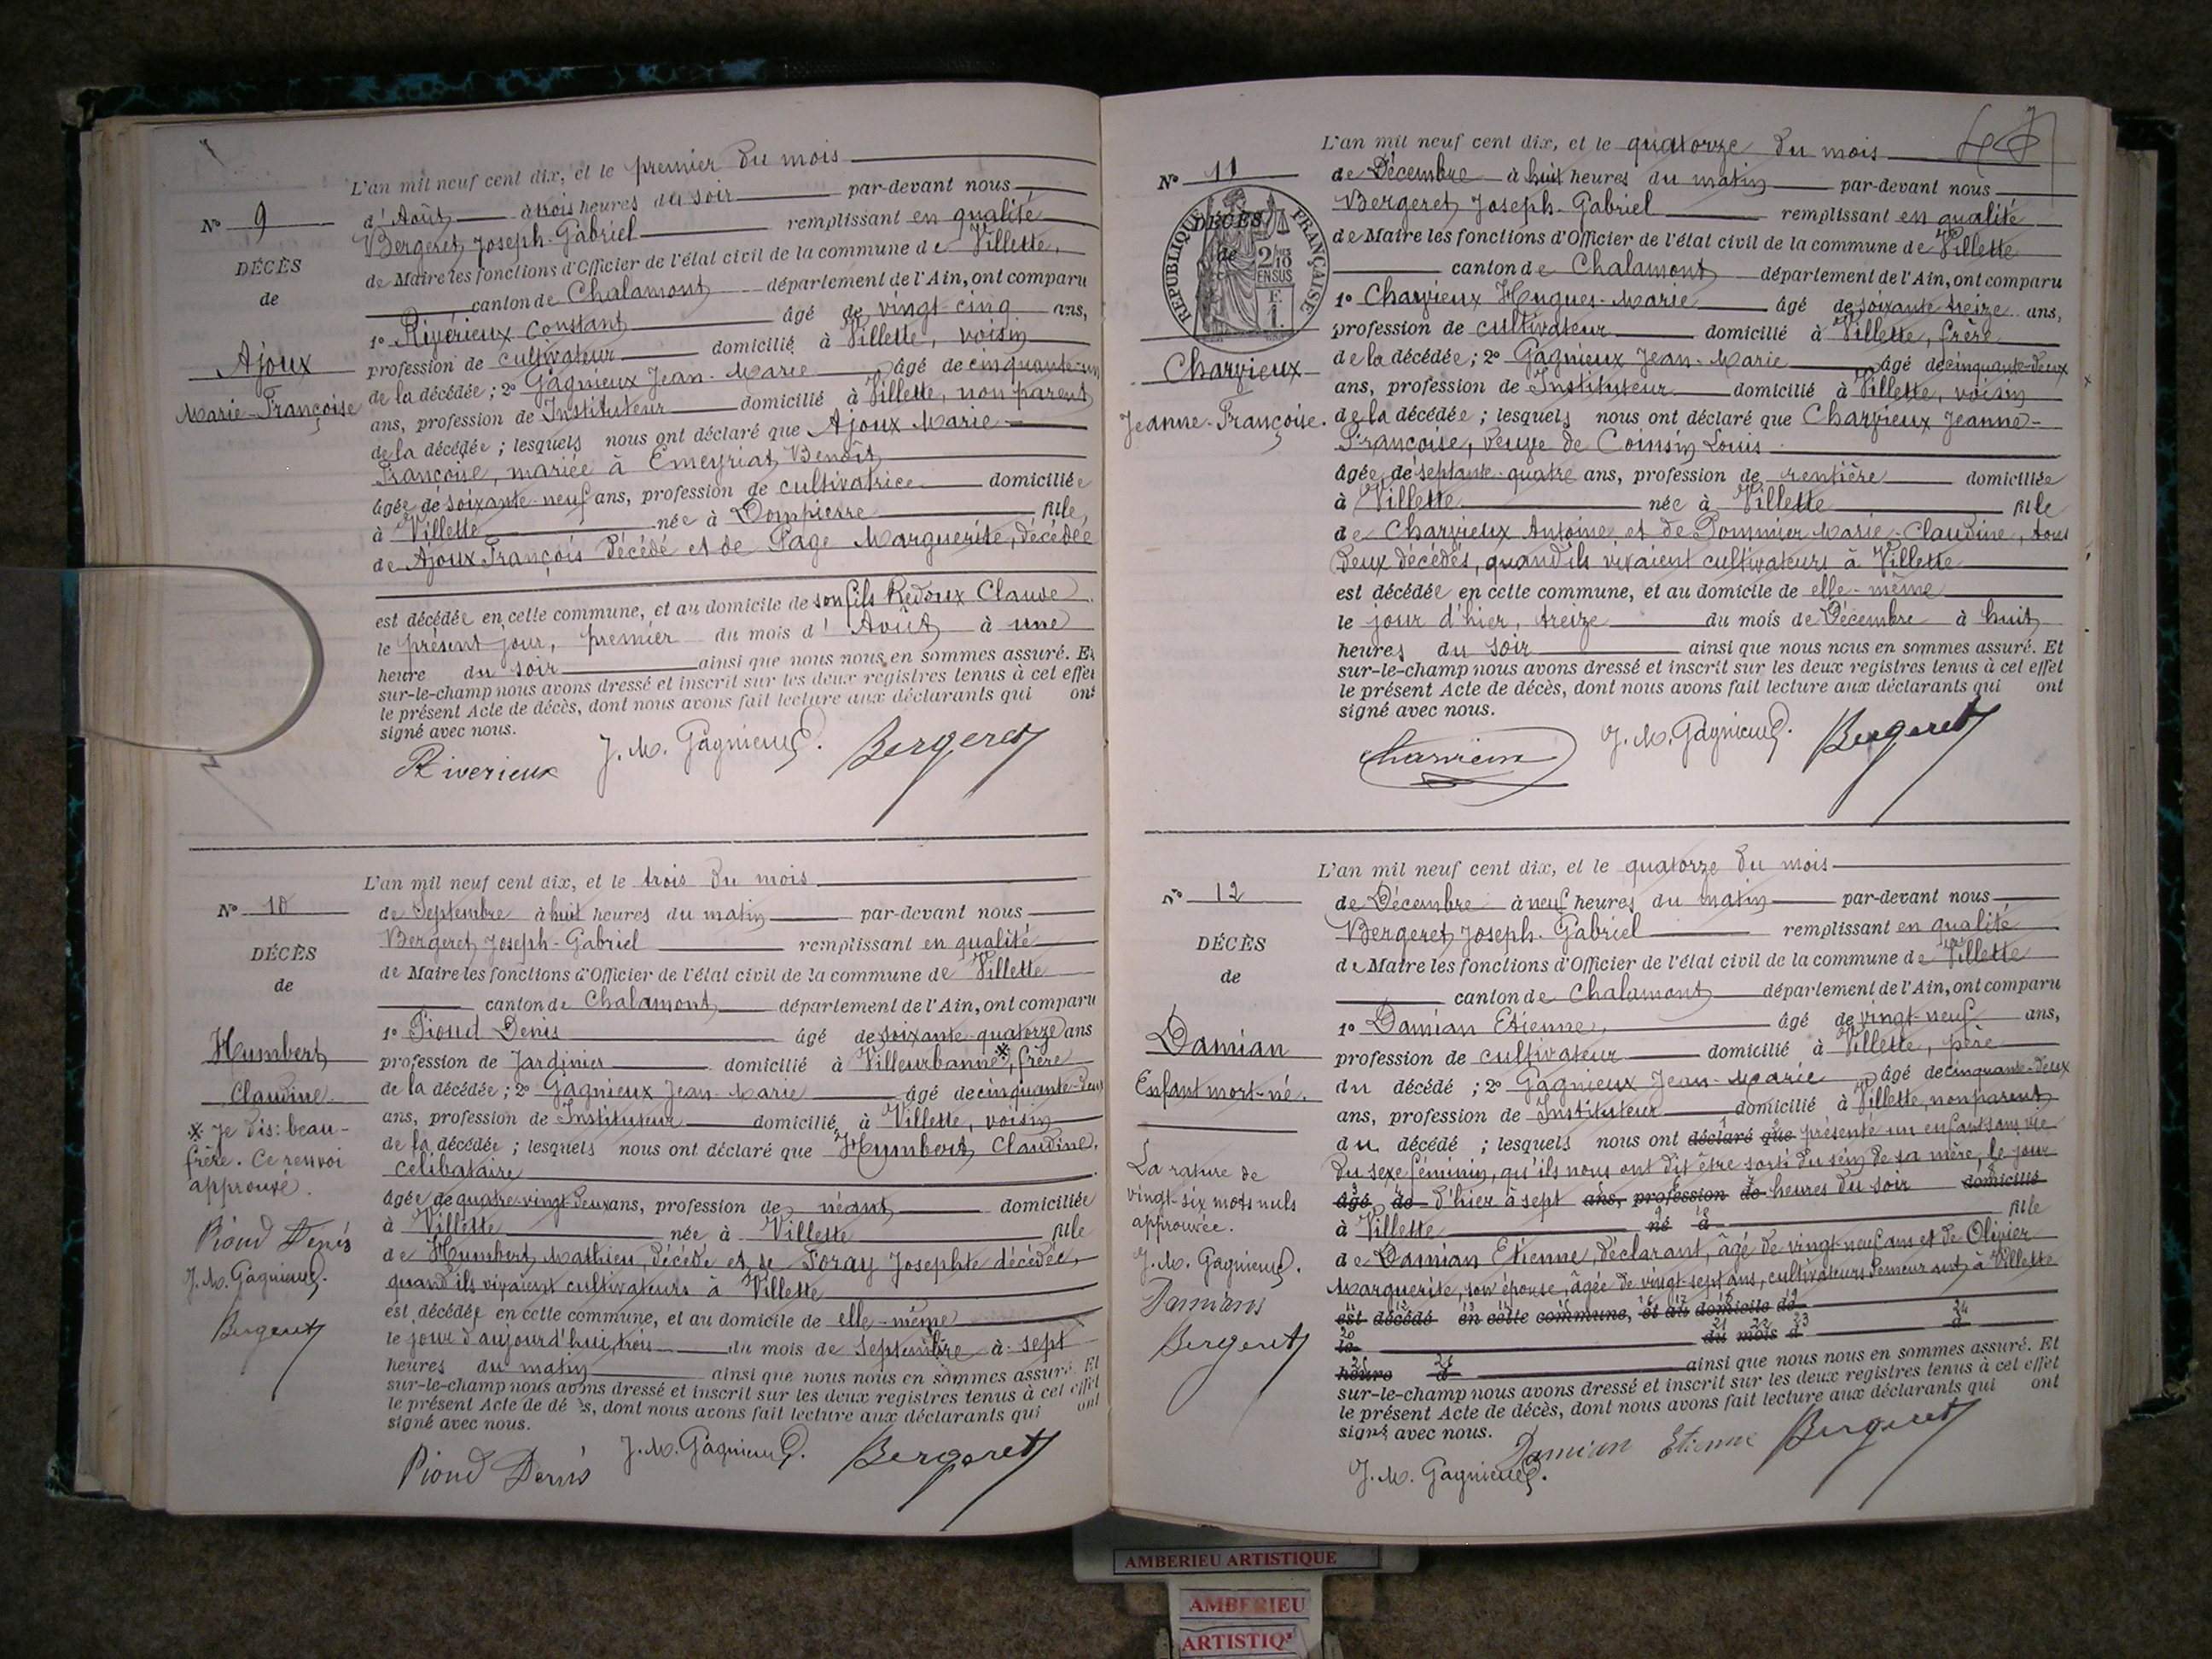 L'an mil neuf cent dix, et le premier du mois
d'Août à trois heures du soir par-devant nous
Bergeret Joseph-Gabriel remplissant en qualité
de Maire les fonctions d'Officier de l'état civil de la commune de Villette,
canton de Chalamont département de l'Ain, ont comparu
1º Rivérieux Constant âgé de vingt-cinq ans,
profession de cultivateur domicilié à Villette, voisin
de la décédée ; 2º Gagnieux Jean-Marie âgé de cinquante-un
ans, profession de Instituteur domicilié à Villette, non parent
de la décédée ; lesquels nous ont déclaré que Ajoux Marie-
Françoise, mariée à Emeyriat Benoît
âgée de soixante-neuf ans, profession de cultivatrice domiciliée
à Villette née à Dompierre fille
de Ajoux François décédé et de Page Marguerite, décédée
est décédée en cette commune, et au domicile de son fils Redoux Claude
le présent jour, premier du mois d'Août à une
heure du soir ainsi que nous nous en sommes assuré. Et
sur-le-champ nous avons dressé et inscrit sur les deux registres tenus à cet effet
le présent Acte de décès, dont nous avons fait lecture aux déclarants qui ont
signé avec nous.
Riverieux J. M. Gagnieux. Bergeret
Nº 9
DÉCÈS
de
Ajoux
Marie-Françoise
L'an mil neuf cent dix, et le trois du mois
de Septembre à huit heures du matin par-devant nous
Bergeret Joseph-Gabriel remplissant en qualité
de Maire les fonctions d'Officier de l'état civil de la commune de Villette
canton de Chalamont département de l'Ain, ont comparu
1º Pioud Denis âgé de soixante-quatorze ans
profession de Jardinier domicilié à Villeurbanne*, frère
de la décédée ; 2º Gagnieux Jean-Marie âgé de cinquante-deux
ans, profession de Instituteur domicilié à Villette, voisin
de la décédée ; lesquels nous ont déclaré que Humbert Claudine,
célibataire
âgée de quatre-vingt-deux ans, profession de néant domiciliée
à Villette née à Villette fille
de Humbert Mathieu, décédé et de Foray Josephte décédée,
quand ils vivaient cultivateurs à Villette
est décédée en cette commune, et au domicile de elle-même
le jour d'aujourd'hui, trois du mois de Septembre à sept
heures du matin ainsi que nous nous en sommes assuré. Et
sur-le-champ nous avons dressé et inscrit sur les deux registres tenus à cet effet
le présent Acte de décès, dont nous avons fait lecture aux déclarants qui ont
signé avec nous.
Pioud Denis J. M. Gagnieux. Bergeret
Nº 10
DÉCÈS
de
Humbert
Claudine
* Je dis: beau-
frère. Ce renvoi
approuvé.
Pioud Denis
J. M. Gagnieux.
Bergeret
L'an mil neuf cent dix, et le quatorze du mois
de Décembre à huit heures du matin par-devant nous
Bergeret Joseph-Gabriel remplissant en qualité
de Maire les fonctions d'Officier de l'état civil de la commune de Villette
canton de Chalamont département de l'Ain, ont comparu
1º Charvieux Hugues-Marie âgé de soixante-treize ans,
profession de cultivateur domicilié à Villette, frère
de la décédée ; 2º Gagnieux Jean-Marie âgé de cinquante-deux
ans, profession de Instituteur domicilié à Villette, voisin
de la décédée ; lesquels nous ont déclaré que Charvieux Jeanne-
Françoise, veuve de Coinsin Louis
âgée de septante-quatre ans, profession de rentière domiciliée
à Villette née à Villette fille
de Charvieux Antoine et de Pommier Marie-Claudine, tous
deux décédés, quand ils vivaient cultivateurs à Villette
est décédée en cette commune, et au domicile de elle-même
le jour d'hier, treize du mois de Décembre à huit
heures du soir ainsi que nous nous en sommes assuré. Et
sur-le-champ nous avons dressé et inscrit sur les deux registres tenus à cet effet
le présent Acte de décès, dont nous avons fait lecture aux déclarants qui ont
signé avec nous.
Charvieux J. M. Gagnieux. Bergeret
Nº 11
RÉPUBLIQUE FRANÇAISE
DÉCÈS
de
2/10 EN SUS
Charvieux
Jeanne-Françoise.
L'an mil neuf cent dix, et le quatorze du mois
de Décembre à neuf heures du matin par-devant nous
Bergeret Joseph-Gabriel remplissant en qualité
de Maire les fonctions d'Officier de l'état civil de la commune de Villette
canton de Chalamont département de l'Ain, ont comparu
1º Damian Etienne, âgé de vingt-neuf ans,
profession de cultivateur domicilié à Villette, père
du décédé ; 2º Gagnieux Jean-Marie âgé de cinquante-deux
ans, profession de Instituteur domicilié à Villette, non parent
du décédé ; lesquels nous ont déclaré que présenté un enfant sans vie
du sexe féminin, qu'ils nous ont dit être sorti du sein de sa mère, le jour
âgé de d'hier à sept ans, profession de heures du soir domicilié
à Villette né à fille
de Damian Etienne, déclarant, âgé de vingt-neuf ans et de Olivier
Marguerite, son épouse, âgée de vingt-sept ans, cultivateurs demeurant à Villette
est décédé en cette commune, et au domicile de
le du mois d à
heure d ainsi que nous nous en sommes assuré. Et
sur-le-champ nous avons dressé et inscrit sur les deux registres tenus à cet effet
le présent Acte de décès, dont nous avons fait lecture aux déclarants qui ont
signé avec nous. Damian Etienne Bergeret
J. M. Gagnieux.
Nº 12
DÉCÈS
de
Damian
Enfant mort-né.
La rature de
vingt-six mots nuls
approuvée.
J. M. Gagnieux.
Damians
Bergeret
AMBERIEU ARTISTIQUE
AMBERIEU
ARTISTIQ